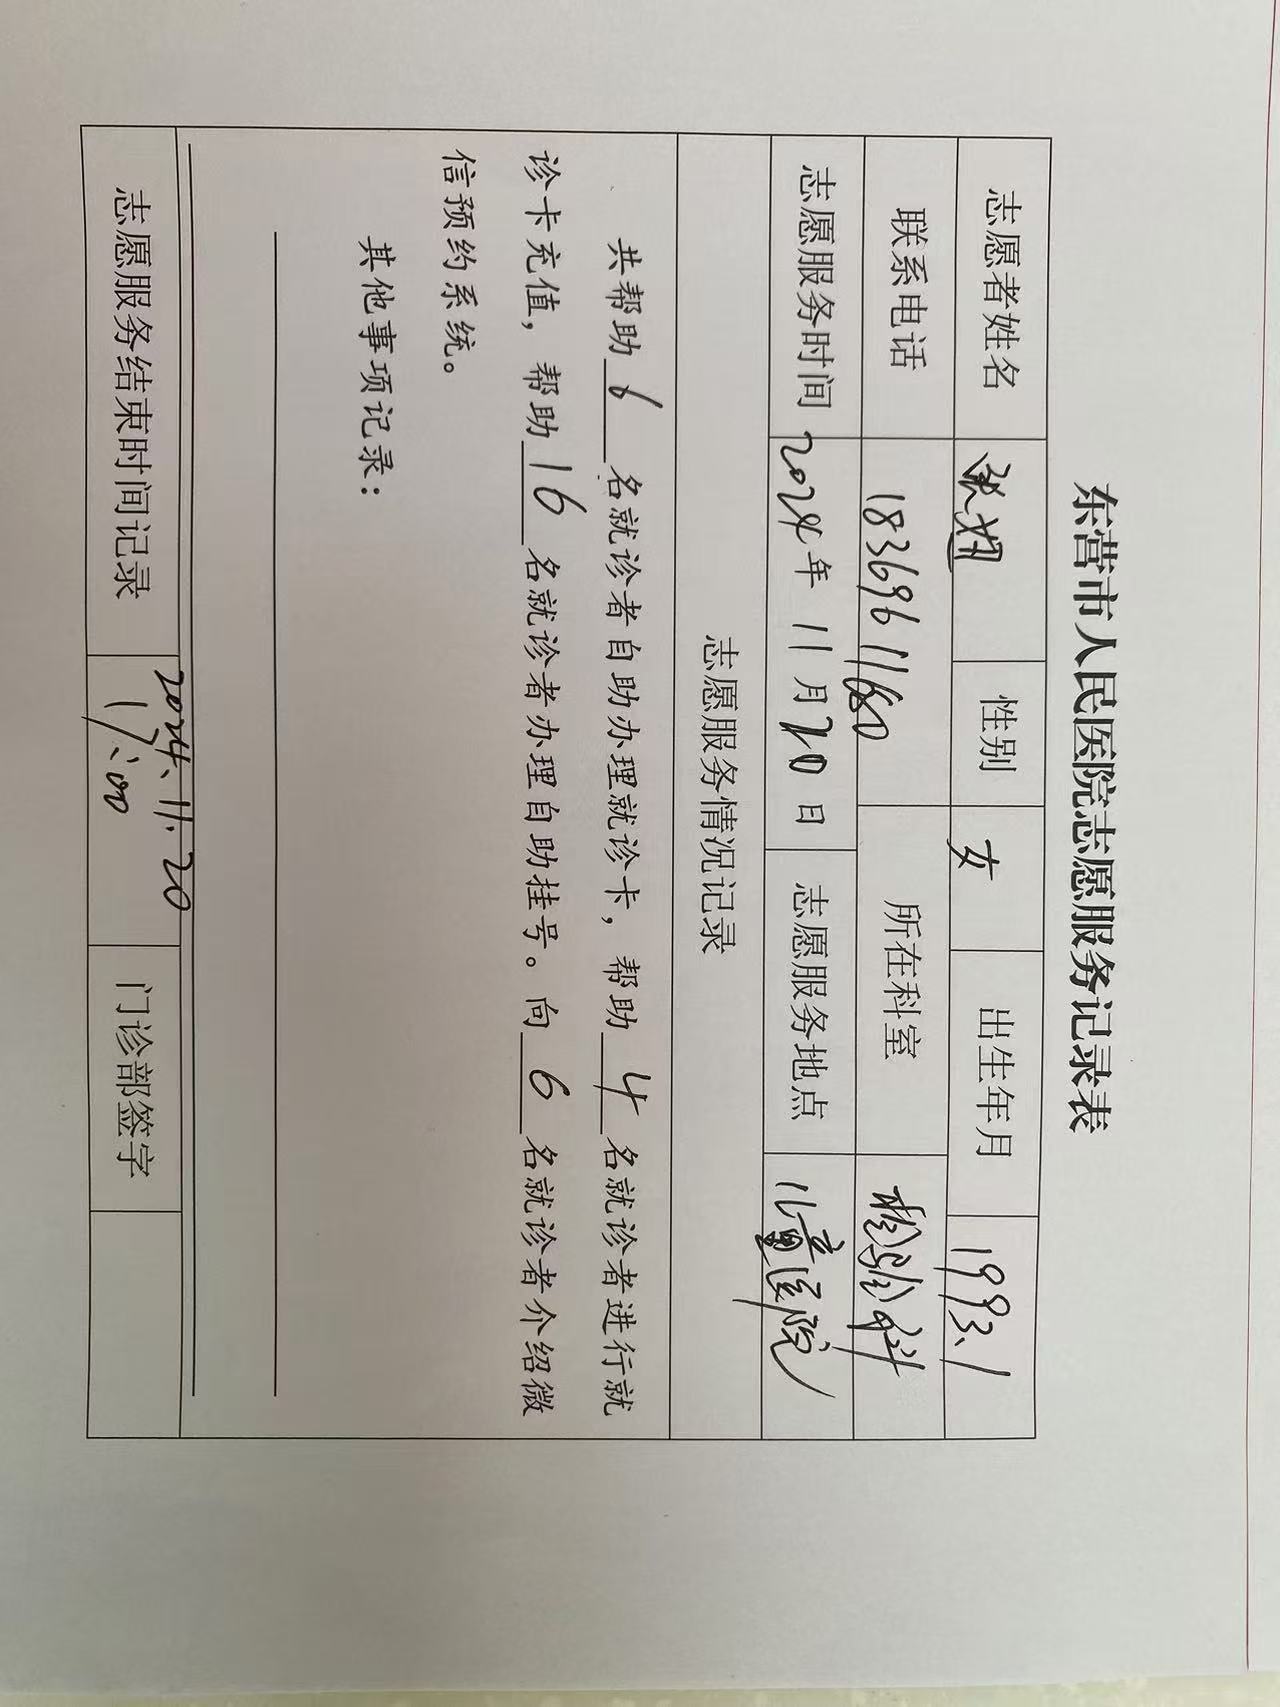 东营市人民医院志愿服务记录表
志愿者姓名 张 性别 女 出生年月 1993.1
联系电话 18369611680 所在科室 检验科
志愿服务时间 2024年11月20日 志愿服务地点 儿童医院
志愿服务情况记录
共帮助 6 名就诊者自助办理就诊卡，帮助 4 名就诊者进行就
诊卡充值，帮助 16 名就诊者办理自助挂号。向 6 名就诊者介绍微
信预约系统。
其他事项记录：
志愿服务结束时间记录 2024.11.20 门诊部签字
17:00